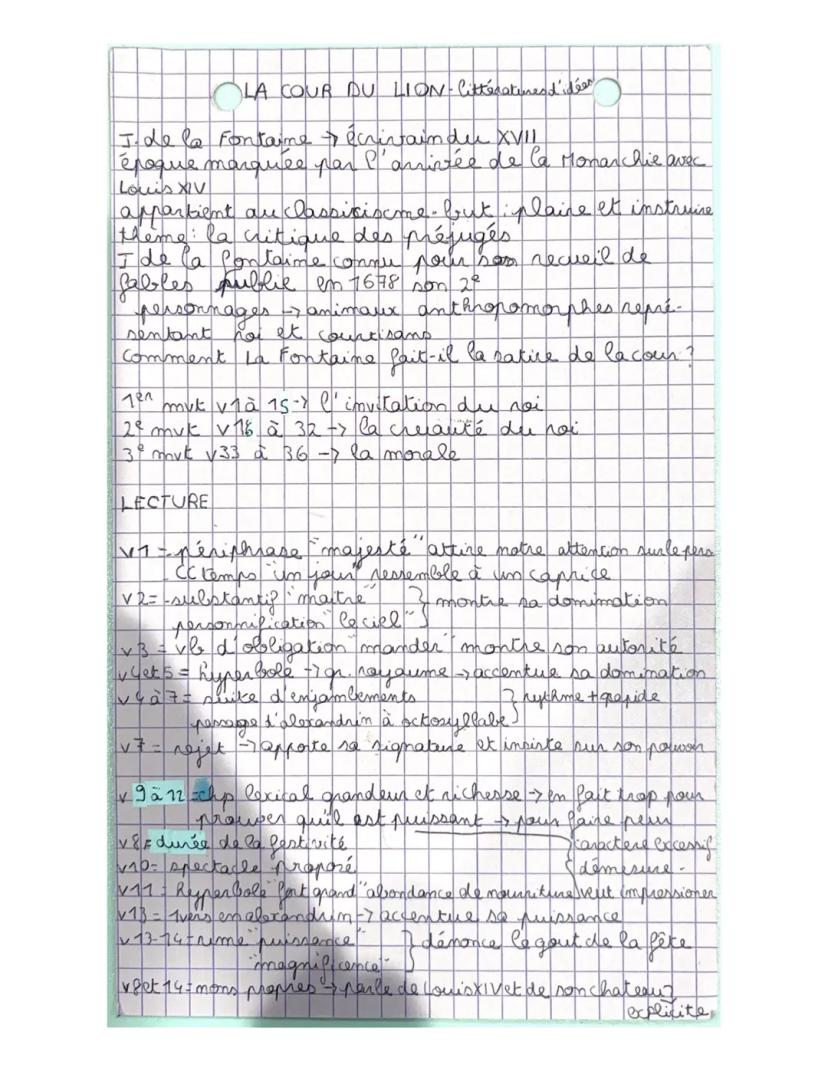 LA COUR DU LION - littératures d'idées
J. de la Fontaine → écrivain du XVII
époque marquée par l'arrivée de la Monarchie avec
Louis XIV
appartient au classiciscme - but : plaire et instruire
thème : la critique des préjugés
J de la fontaine connu pour son recueil de
fables publié en 1678 son 2e
personnages → animaux anthropomorphes repré-
sentant roi et courtisans
Comment La Fontaine fait-il la satire de la cour ?
1er mvt v1 à 15 → l'invitation du roi
2e mvt v16 à 32 → la cruauté du roi
3e mvt v33 à 36 → la morale
LECTURE
v1 = périphrase "majesté" attire notre attention sur le perso
CC temps "un jour" ressemble à un caprice
v2 = - substantif "maitre" } montre sa domination
personnification "le ciel"
v3 = vb d'obligation "mander" montre son autorité
v4et5 = hyperbole → gr. royaume → accentue sa domination
v4 à 7 = suite d'enjambements } rythme + rapide
passage d'alexandrin à octosyllabe
v7 = rejet → apporte sa signature et insiste sur son pouvoir
v 9 à 12 = chp lexical grandeur et richesse → en fait trop pour
prouver qu'il est puissant → pour faire peur
v8 = durée de la festivité { caractere excessif
v10 = spectacle proposé démesure -
v11 = hyperbole "fort grand" abondance de nourriture veut impressioner
v13 = 1 vers en alexandrin → accentue sa puissance
v13-14 = rime "puissance" } dénonce le gout de la fête
"magnificence"
v8et 14 = mons propres → parle de Louis XIV et de son chateau
explicite